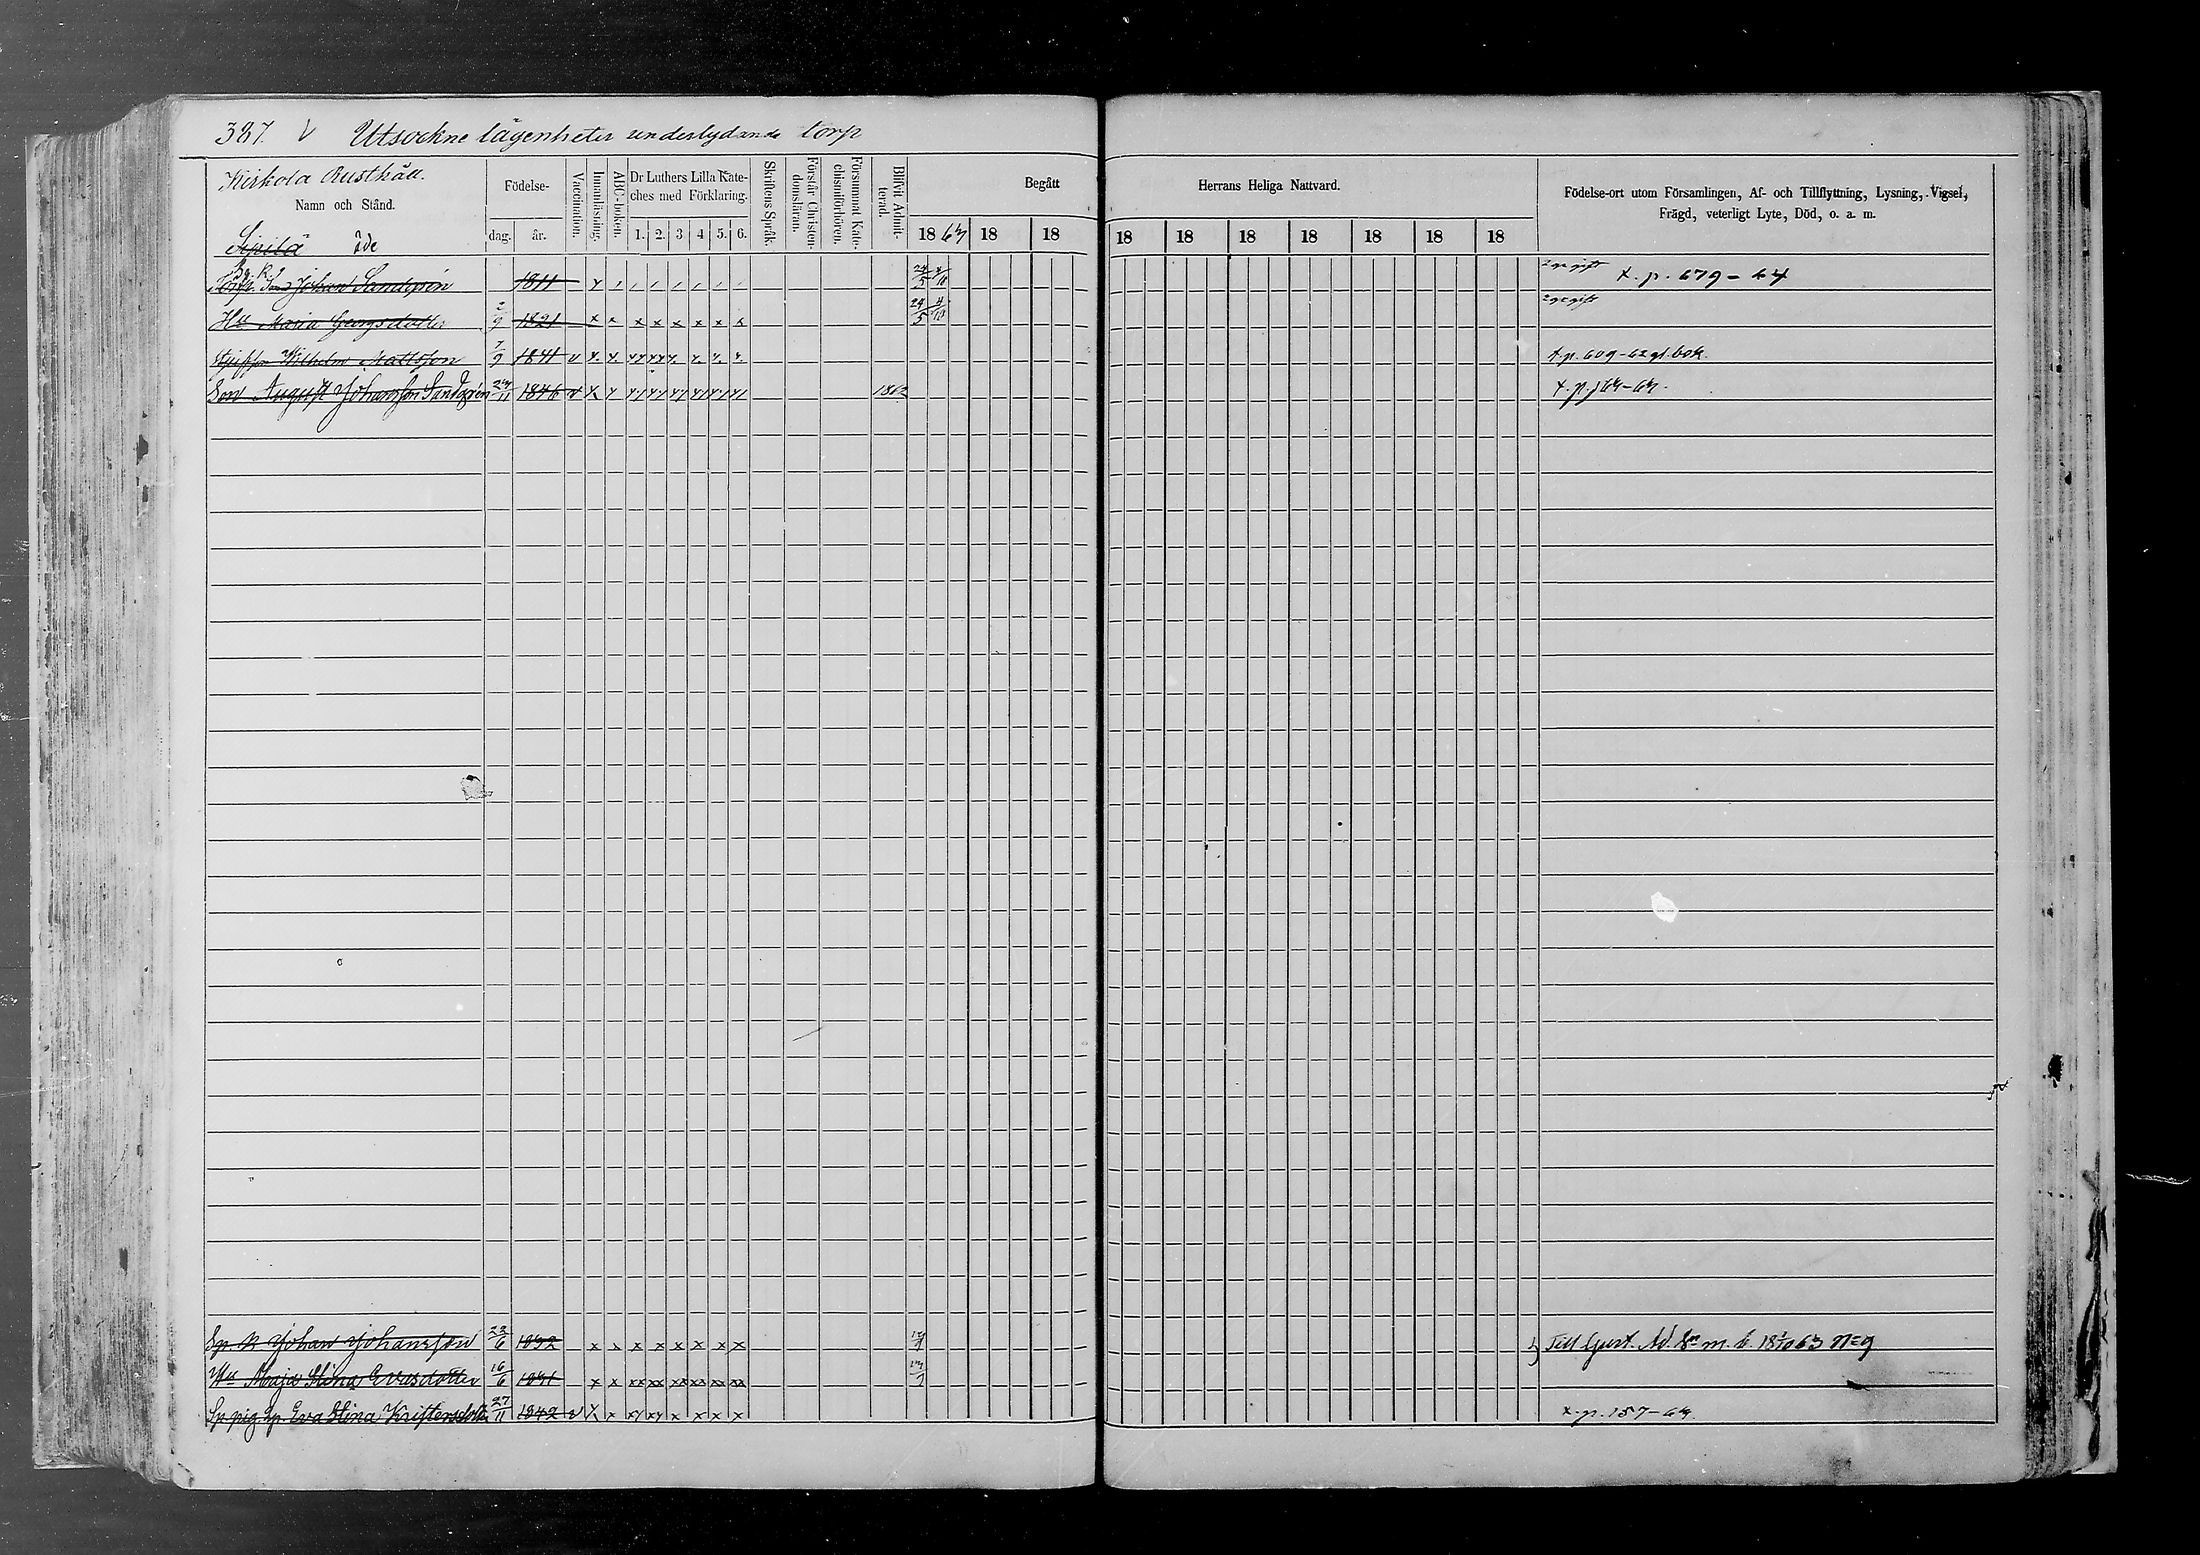 327. V Utsockne lägenheter underlydande torp
Kirkola Rusthåll.
Namn och Stånd.
Födelse-
dag. år.
Vaccination.
Innanläsning.
ABC-boken.
Dr Luthers Lilla Kateches med Förklaring.
1. 2. 3 4 5. 6.
Skriftens Språk.
Förstår Christendomsläran.
Försummat Katechismiförhören.
Blifvit Admitterad.
Begått Herrans Heliga Nattvard.
18 63 18 18 18 18 18 18 18 18 18
Födelse-ort utom Församlingen, Af- och Tillflyttning, Lysning, Vigsel,
Frägd, veterligt Lyte, Död, o. a. m.
Sipilä öde
Johan Sandgrén 1811 24/5 4/10 2 ge gift x. p. 679-64
Hu Maria Georgsdotter 2/9 1821 x x x x x x x x 24/5 4/10 2 ge gift
Wilhelm Mattsson 7/9 1841 v x. p. 609-62 gl. bok.
Son August Johansson Sandgrén 1846 v 1862
Johan Johansson 22/6 1832 x x x x x x x x Till
Hu Maja Stina Evasdotter 16/6 1831 x x xx xx xx xx xx xx
Eva Stina Kristersdotter 27/11 1842 v x x xy xy x x x x x. p. 157-63.